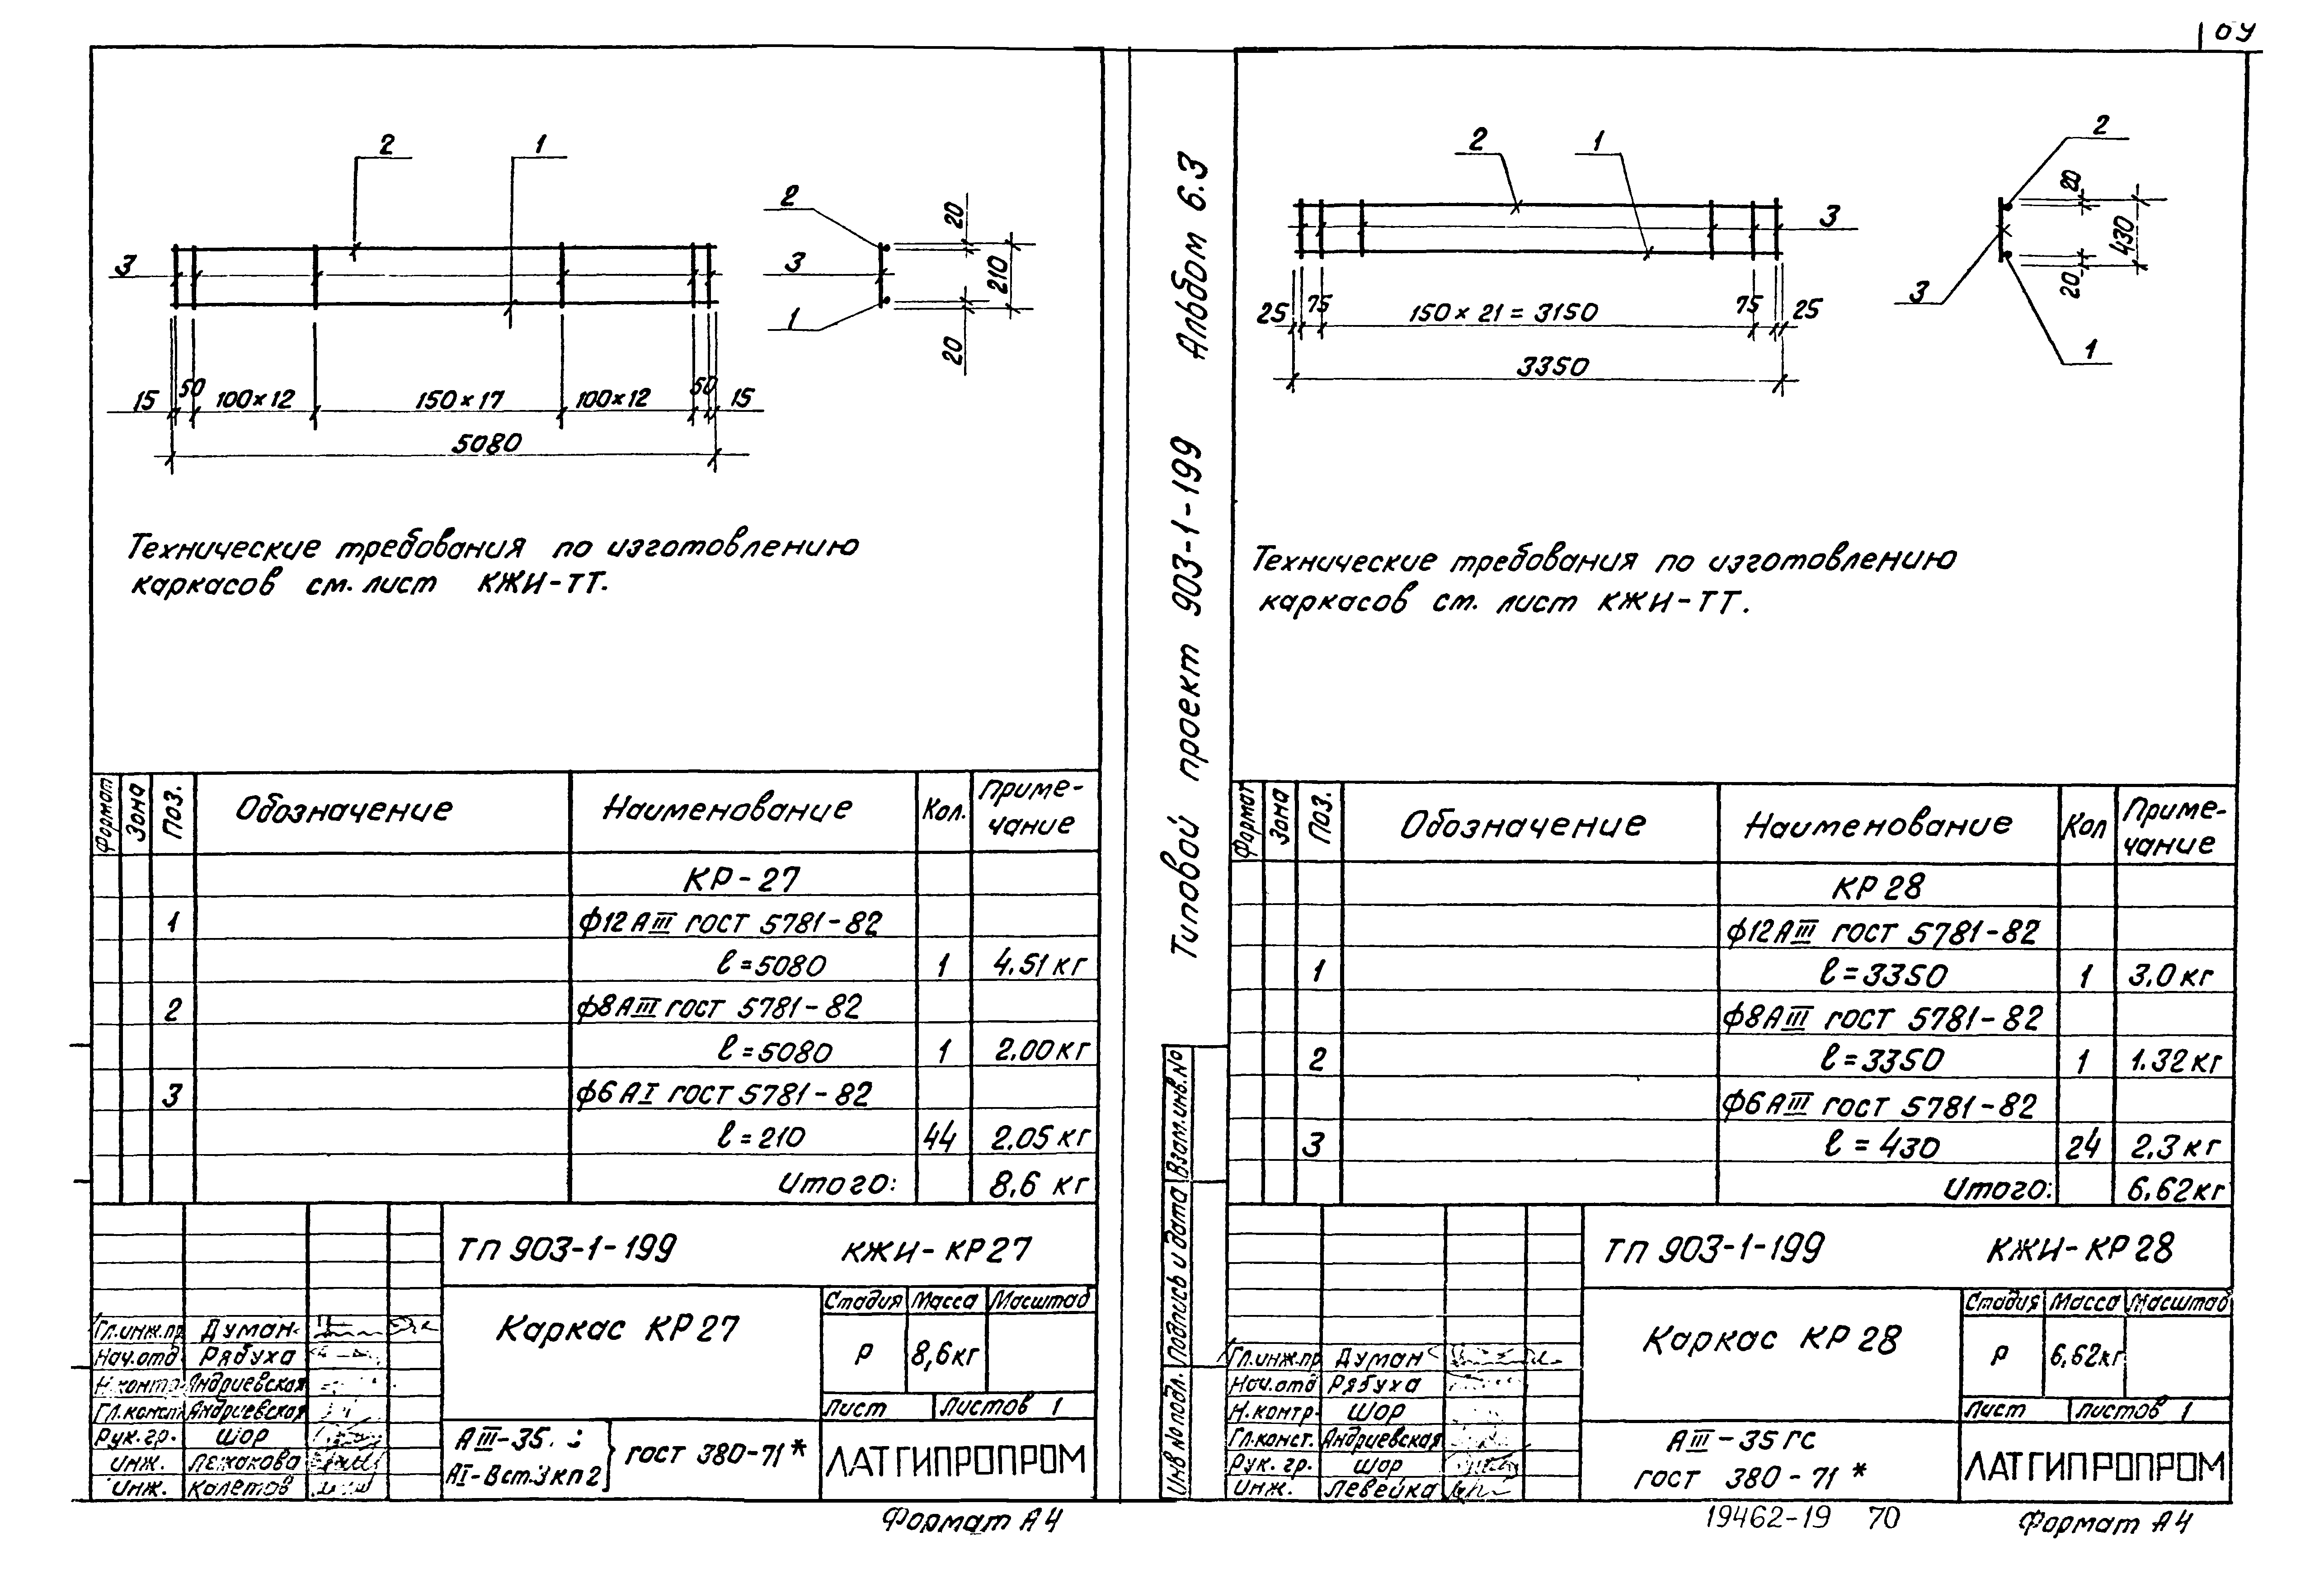 2
1
2
20
3
3
210
1
20
15
50
100×12
150×17
100×12
50
15
5080
Технические требования по изготовлению
каркасов см. лист КЖИ-ТТ.
Формат
Зона
Поз.
Обозначение
Наименование
Кол.
Приме-
чание
КР-27
1
ф12 АIII ГОСТ 5781-82
ℓ=5080 1 4.51 кг
2
ф8 АIII ГОСТ 5781-82
ℓ=5080 1 2.00 кг
3
ф6 АI ГОСТ 5781-82
ℓ=210 44 2.05 кг
Итого: 8,6 кг
ТП 903-1-199 КЖИ-КР27
Каркас КР27
Стадия Масса Масштаб
Р 8,6кг
Лист Листов 1
Гл.инж.пр Думан
Нач.отд Рябуха
Н.контр. Андриевская
Гл.конст Андриевская
Рук.гр. Шор
инж.
инж.
АIII-35
АI-Вст.3кп2
ГОСТ 380-71*
ЛАТГИПРОПРОМ
Формат А4
Типовой проект 903-1-199 Альбом 6.3
Взам.инв.№
Подпись и дата
Инв № подл.
2
1
2
20
3
430
20
3
1
25
75
150×21=3150
75
25
3350
Технические требования по изготовлению
каркасов см. лист КЖИ-ТТ.
Формат
Зона
Поз.
Обозначение
Наименование
Кол
Приме-
чание
КР 28
ф12 АIII ГОСТ 5781-82
1 ℓ=3350 1 3.0 кг
ф8 АIII ГОСТ 5781-82
2 ℓ=3350 1 1.32 кг
ф6 АIII ГОСТ 5781-82
3 ℓ=430 24 2.3 кг
Итого: 6,62кг
ТП 903-1-199 КЖИ-КР28
Каркас КР28
Стадия Масса Масштаб
Р 6,62кг
Лист Листов 1
Гл.инж.пр Думан
Нач.отд Рябуха
Н.контр. Шор
Гл.конст. Андриевская
Рук.гр. Шор
Инж. Левейка
АIII-35 ГС
ГОСТ 380-71*
ЛАТГИПРОПРОМ
19462-19 70
Формат А4